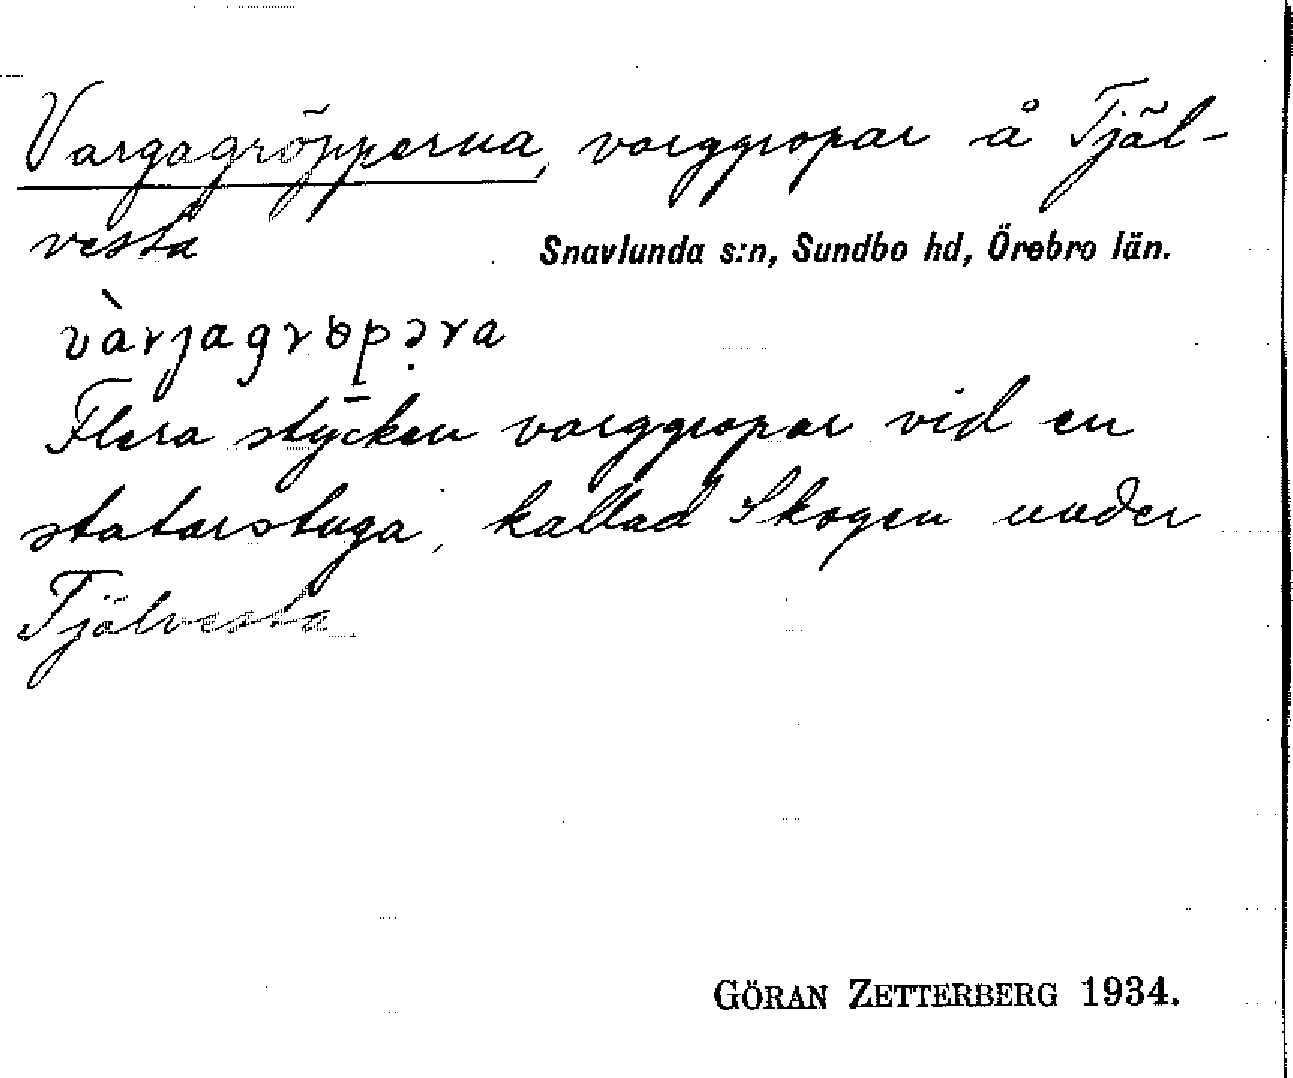 Vargagröpperna, varggropar å Tjäl-
vesta
Snavlunda s:n, Sundbo hd, Örebro län.
vàrjagrɵpəra
Flera stycken varggropar vid en
statarstuga, kallad Skogen under
Tjälvesta
GÖRAN ZETTERBERG 1934.